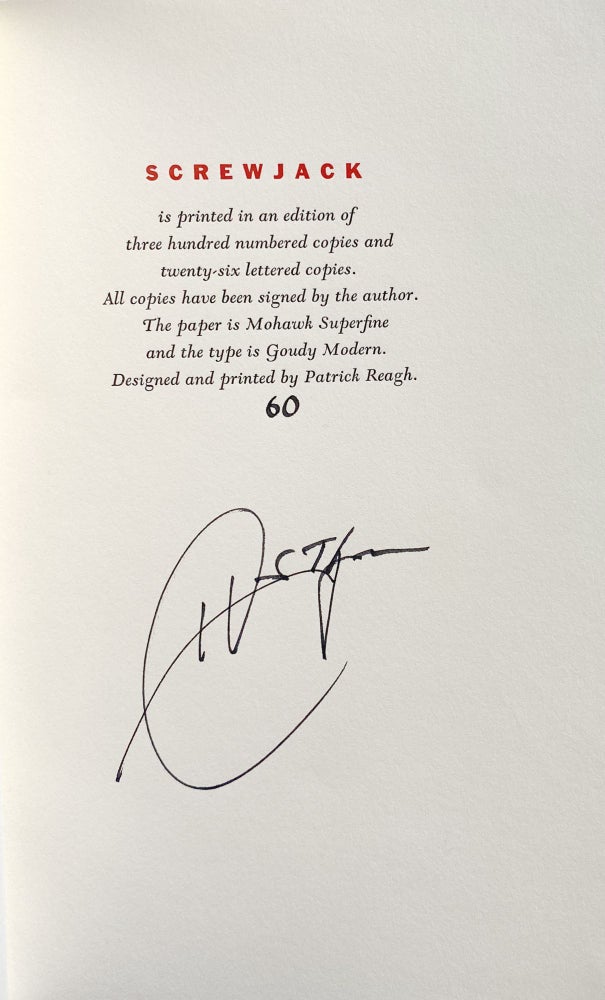 SCREWJACK
is printed in an edition of
three hundred numbered copies and
twenty-six lettered copies.
All copies have been signed by the author.
The paper is Mohawk Superfine
and the type is Goudy Modern.
Designed and printed by Patrick Reagh.
60